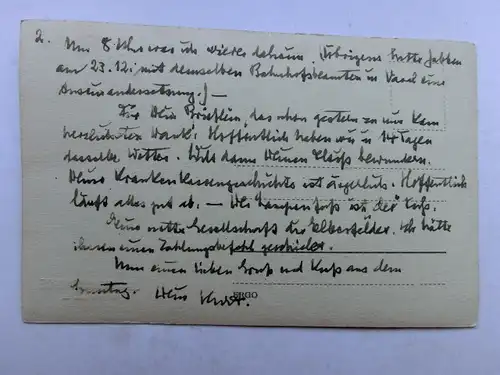 2. Um 8 Uhr war ich wieder daheim. (Übrigens hatte
am 23.12. mit demselben Bahnhofsbeamten in Varel eine
Auseinandersetzung.) —
Für Dein Brieflein, das schon gestern zu uns kam
herzliebsten Dank! Hoffentlich haben wir in 14 Tagen
dasselbe Wetter. Will dann Deinen bewundern.
Deine Krankenkassengeschichte ist ärgerlich. Hoffentlich
läuft alles gut ab. — Der ist der
Eine nette Gesellschaft die Elberfelder. Ich hätte
ihnen einen Zahlungsbefehl geschickt.
Nun einen lieben Gruß und Kuß aus dem
Dein Kurt.
ERGO